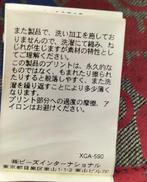 また製品で、洗い加工を施してお
りませんので、洗濯にて縮み、ね
じれが生じますが素材の特性とご
了承ください。
この製品のプリントは、消化的な
ものではなく、もまれたり擦られ
たりすると取れてきます。また洗
濯を繰り返すことにより剥離して
きます。
プリント部分への過度の摩擦、ア
イロンはお避けください。
XCA-590
㈱ビーズインターナショナル
東京都目黒区東山1-1-2 東山ビル7F